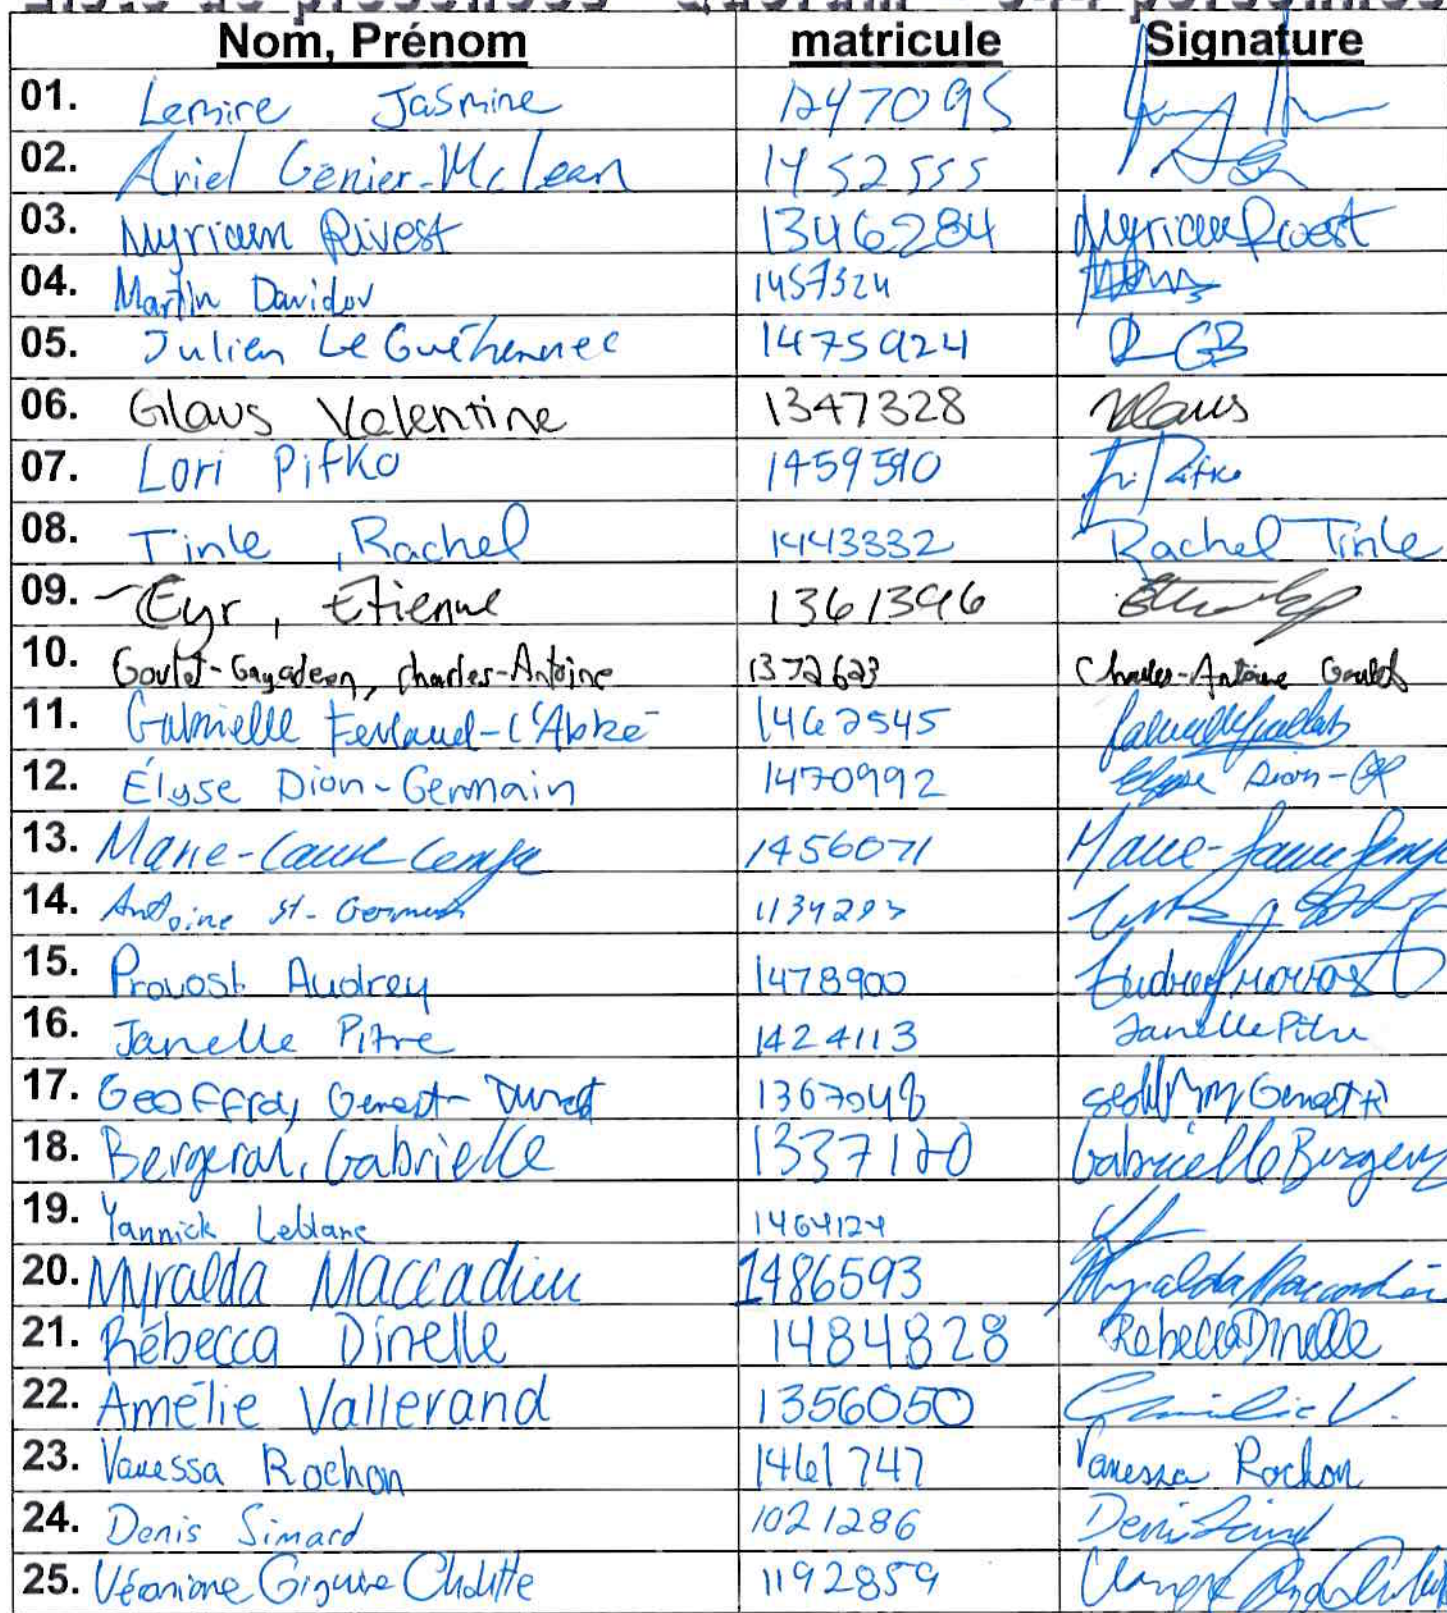 Liste de présences - Quorum - personnes
Nom, Prénom matricule Signature
01. Lemire Jasmine 1247095
02. Ariel Genier-McLean 1452555
03. Myriam Rivest 1346284 Myriam Rivest
04. Martin Davidov 1457324
05. Julien Le Guéhennec 1475924
06. Glaus Valentine 1347328 VGlaus
07. Lori Pifko 1459510 Lori Pifko
08. Tinle, Rachel 1443332 Rachel Tinle
09. Cyr, Etienne 1361396
10. Goulet-Gayadeen, Charles-Antoine 1372623 Charles-Antoine Goulet
11. Gabrielle Ferland-L'Abbé 1462545
12. Élyse Dion-Germain 1470992 Elyse Dion-G
13. Marie-Laure 1456071 Marie-Laure
14. Antoine St-Germain
15. Provost Audrey 1478900 Audrey Provost
16. Janelle Pitre 1424113 Janelle Pitre
17. Geoffroy Genest- Genest
18. Bergeron, Gabrielle 1337120 Gabrielle Bergeron
19. Yannick Leblanc 1464124
20. Myralda Maccadieu 1486593 Myralda Maccadieu
21. Rébecca Dinelle 1484828 Rebecca Dinelle
22. Amélie Vallerand 1356050 Amélie V.
23. Vanessa Rochon 1461747 Vanessa Rochon
24. Denis Simard 1021286 Denis Simard
25. Giguère 1192859